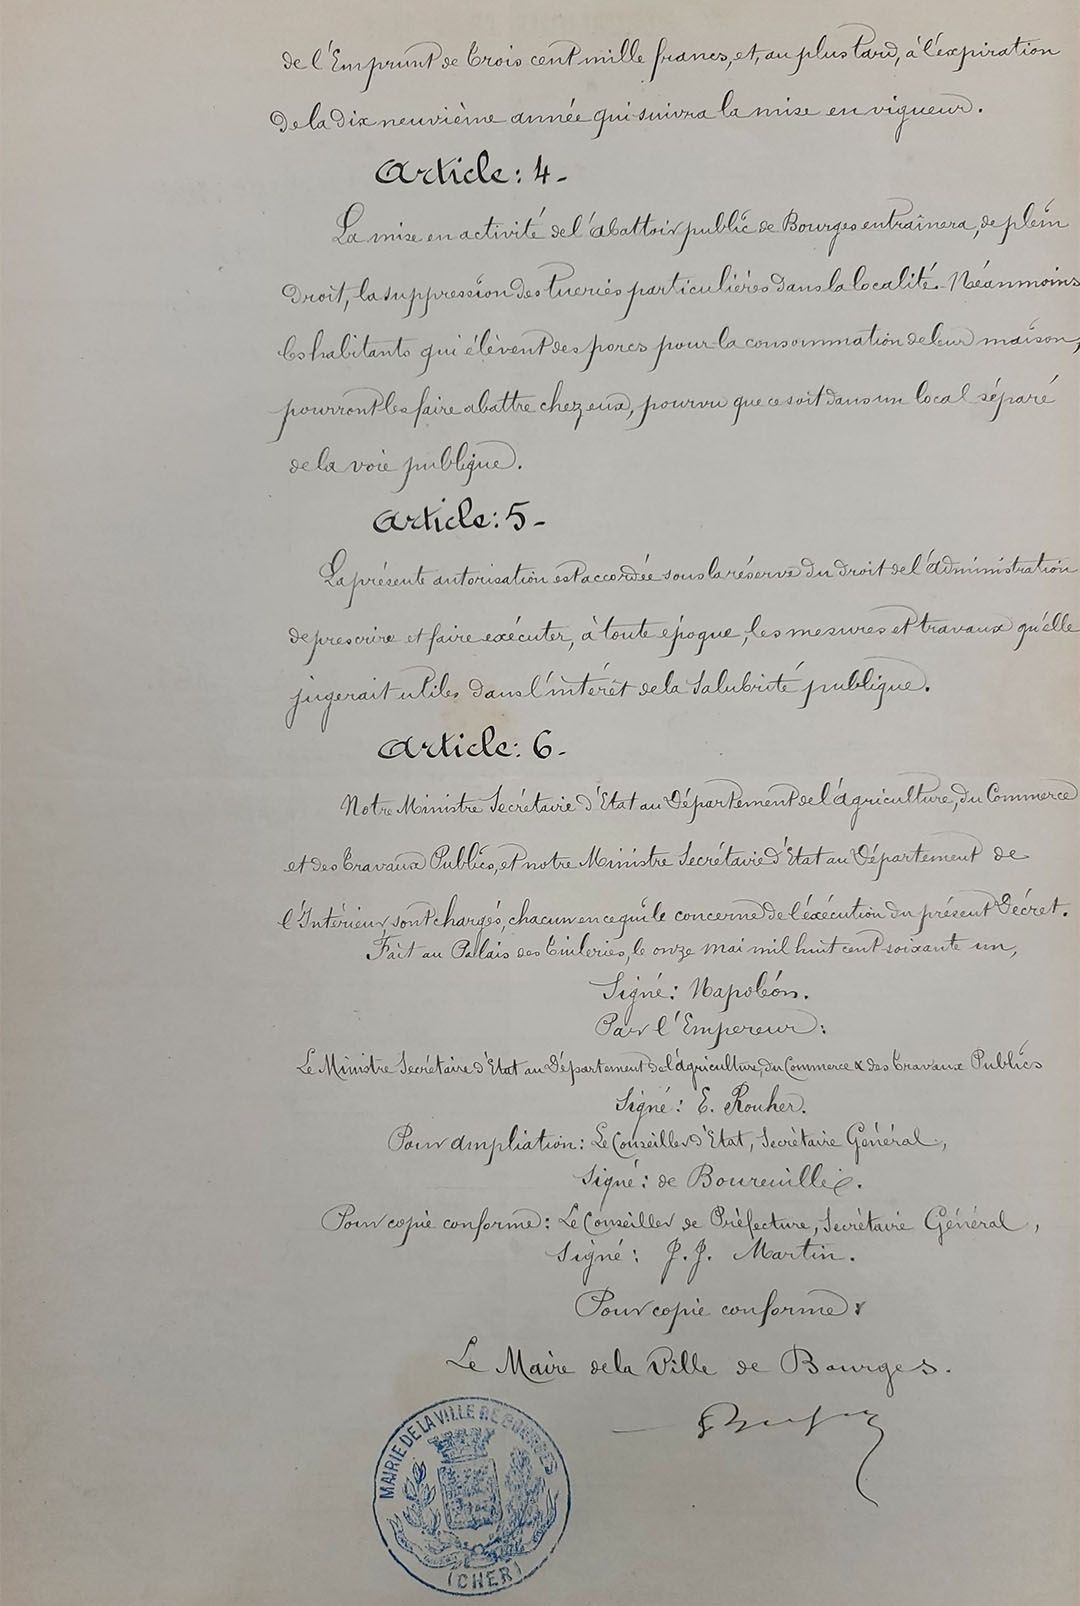 de l'Emprunt de Trois cent mille francs, et, au plus tard, à l'expiration
de la dix neuvième année qui suivra la mise en vigueur.
Article: 4-
La mise en activité de l'Abattoir public de Bourges entraînera, de plein
droit, la suppression des tueries particulières dans la localité. Néanmoins
les habitants qui élèvent des porcs pour la consommation de leur maison,
pourront les faire abattre chez eux, pourvu que ce soit dans un local séparé
de la voie publique.
Article: 5-
La présente autorisation est accordée sous la réserve du droit de l'administration
de prescrire et faire exécuter, à toute époque, les mesures et travaux qu'elle
jugerait utiles dans l'intérêt de la Salubrité publique.
Article: 6-
Notre Ministre Secrétaire d'Etat au Département de l'Agriculture, du Commerce
et des Travaux Publics, et notre Ministre Secrétaire d'Etat au Département de
l'Intérieur, sont chargés, chacun en ce qui le concerne de l'éxécution du présent Décret.
Fait au Palais des Tuileries, le onze Mai mil huit cent soixante un,
Signé: Napoléon.
Par l'Empereur:
Le Ministre Secrétaire d'Etat au Département de l'Agriculture, du Commerce & des Travaux Publics
Signé: E. Rouher.
Pour ampliation: Le Conseiller d'Etat, Secrétaire Général,
Signé: de Boureuille.
Pour copie conforme: Le Conseiller de Préfecture, Secrétaire Général,
Signé: J. J. Martin.
Pour copie conforme:
Le Maire de la Ville de Bourges.
MAIRIE DE LA VILLE DE BOURGES
(CHER)